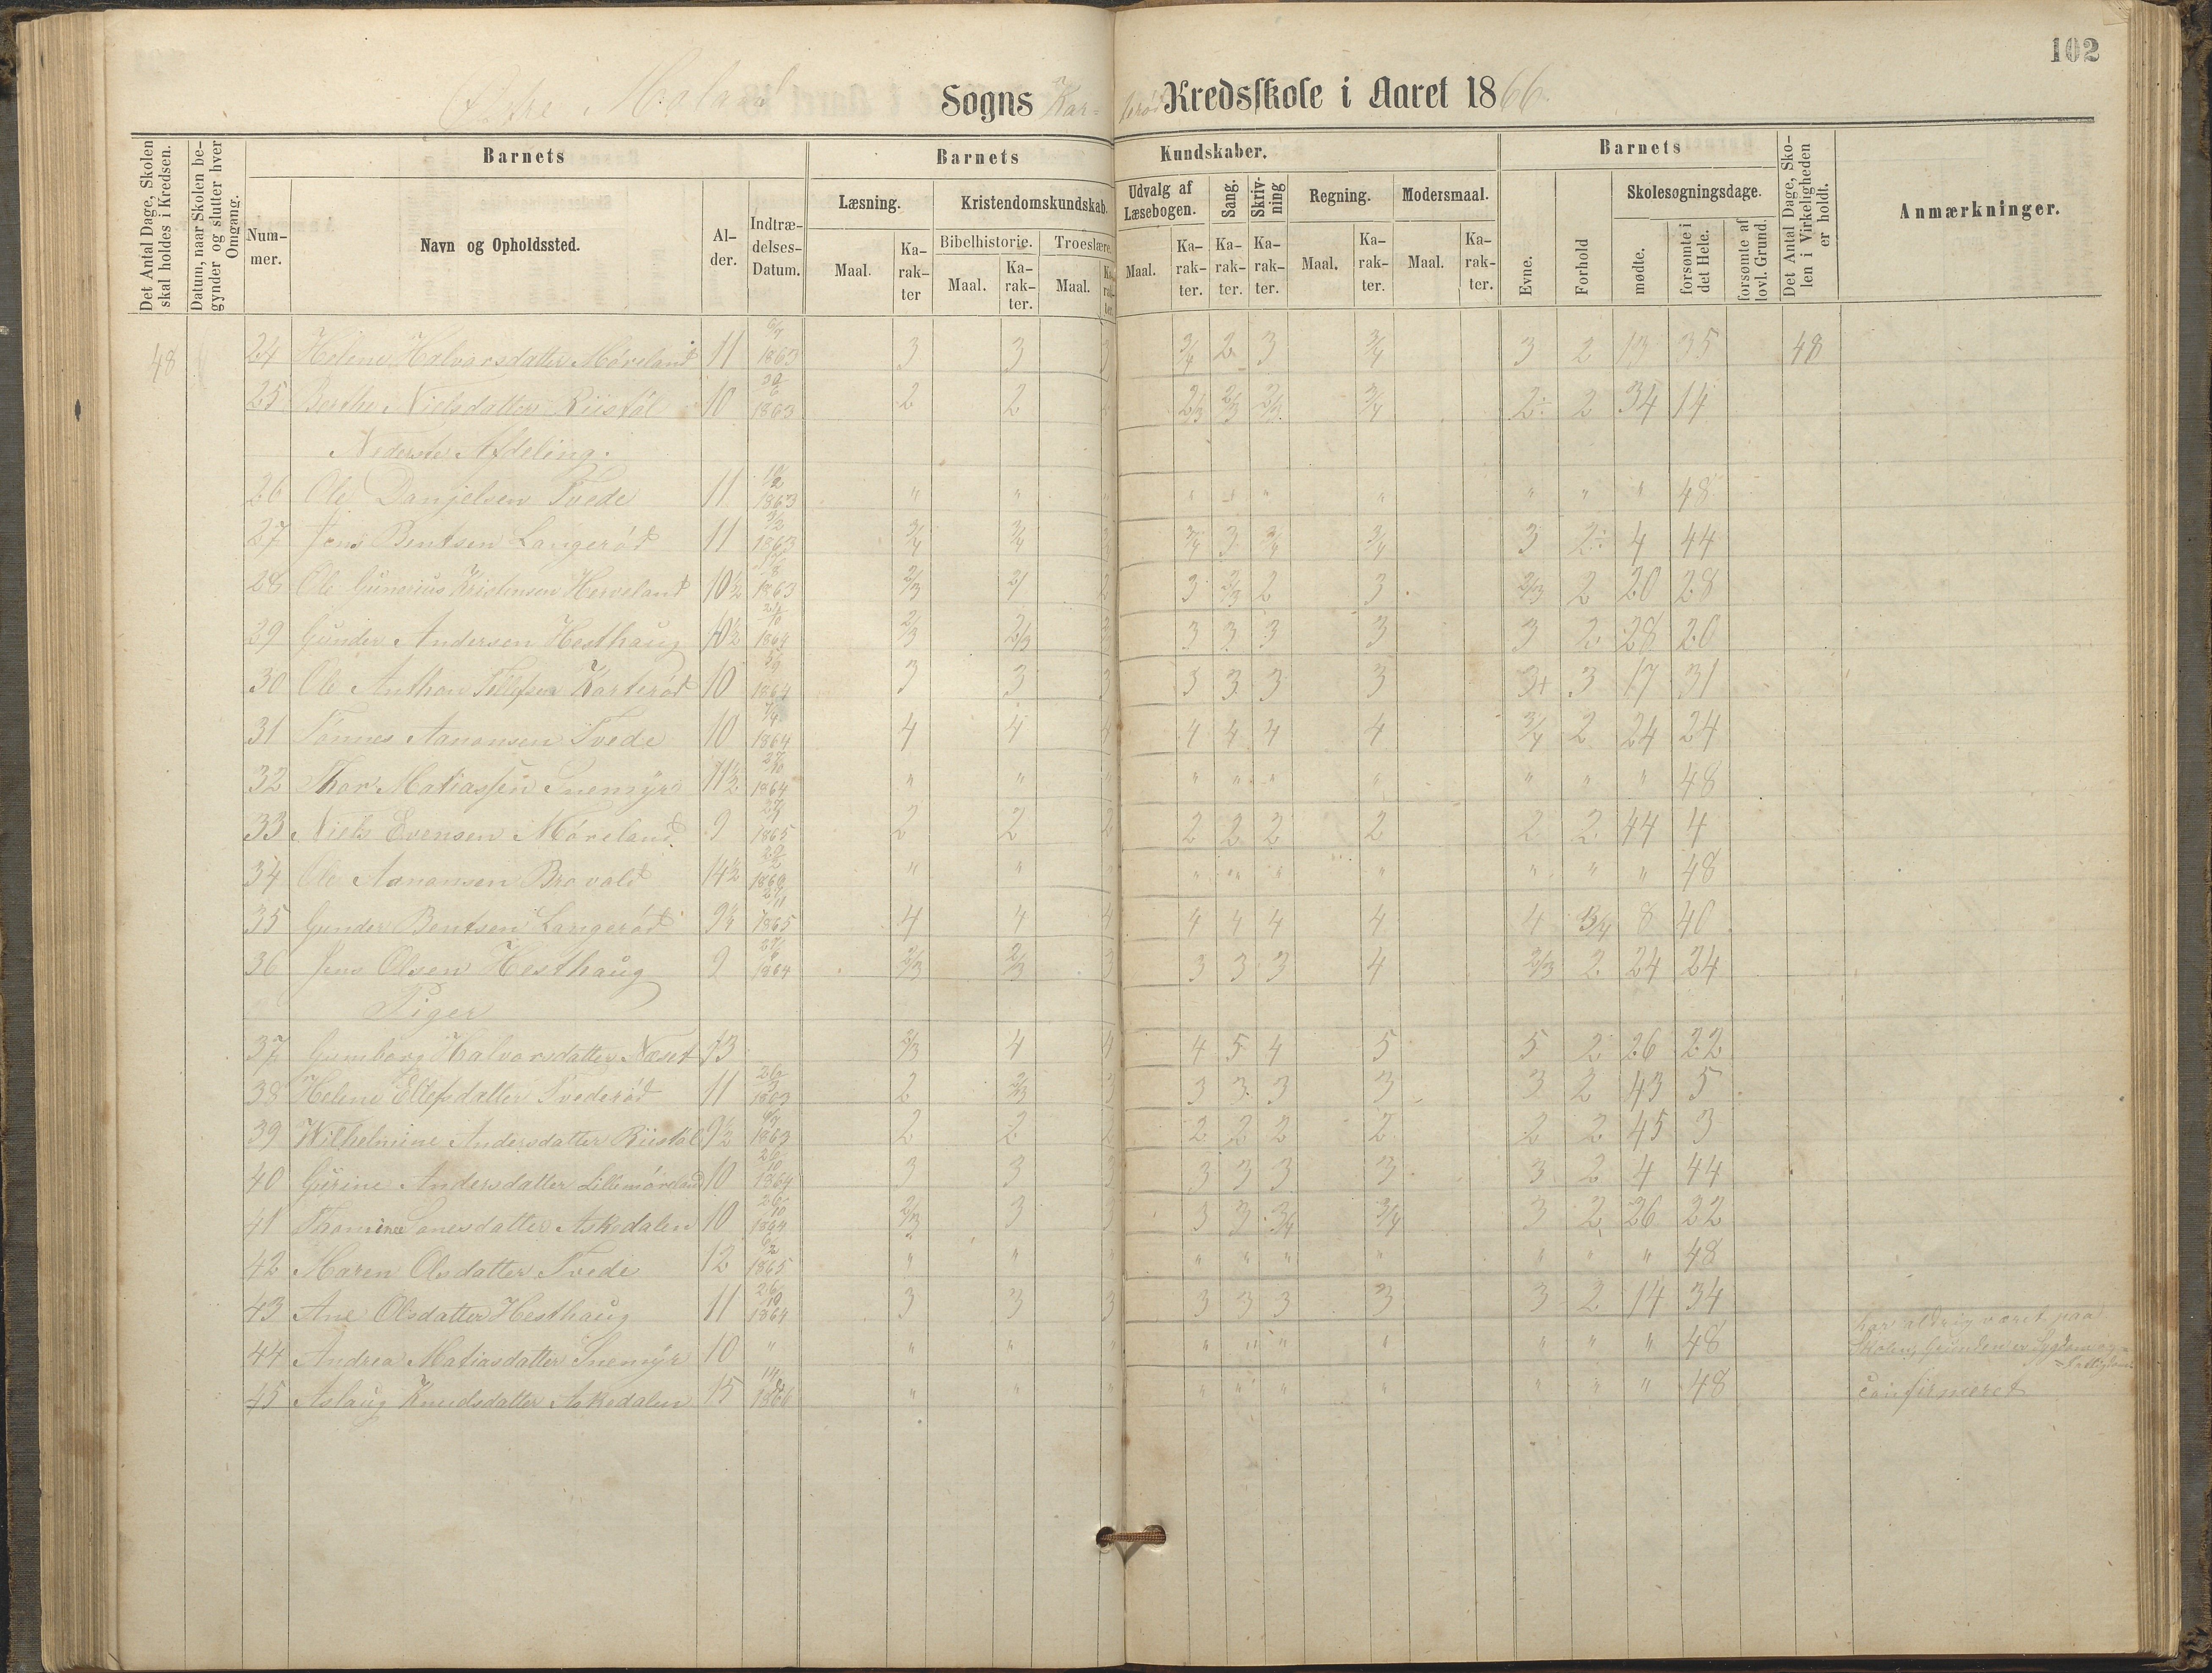 102
Sogns Kar= terød Kredsskole i Aaret 1866.
Det Antal Dage, Skolen skal holdes i Kredsen.
Datum, naar Skolen begynder og slutter hver Omgang.
Barnets
Barnets Kundskaber.
Barnets
Det Antal Dage, Skolen i Virkeligheden er holdt.
Anmærkninger.
Nummer.
Navn og Opholdssted.
Alder.
Indtrædelses-Datum.
Læsning.
Kristendomskundskab.
Udvalg af Læsebogen.
Sang.
Skrivning
Regning.
Modersmaal.
Evne.
Forhold
Skolesøgningsdage.
Bibelhistorie.
Troeslære.
Maal. Karakter Maal. Karakter. Maal. Karakter. Maal. Karakter. Karakter. Karakter. Maal. Karakter. Maal. Karakter.
mødte.
forsømte i det Hele.
forsømte af lovl. Grund.
48 24 Helene Halvorsdatter Møreland 11 6/7 1863 3 3 3 3/4 2 3 3/4 3 2 13 35 48
25 Berthe Nielsdatter Riistøl 10 1863 2 2 2/3 2/3 2/3 3/4 2÷ 2 34 14
Nederste Afdeling.
26 Ole Danjelsen Tvede 11 10/2 1863 " " " " " " " " " " 48
27 Jens Bentsen Langerød 11 3/2 1863 3/4 3/4 3/4 3/4 3 3/4 3/4 3 2÷ 4 44
28 Ole Gunerius Kristensen Herveland 10½ 1863 2/3 2/ 2 3 2/3 2 3 2/3 2 20 28
29 Gunder Andersen Hesthaug 10½ 1864 2/3 2/3 3 3 3 3 3 2 28 20
30 Ole Anthon Tellefsen Karterød 10 1864 3 3 3 3 3 3 3 3+ 3 17 31
31 Tønnes Aanonsen Tvede 10 7/4 1864 4 4 4 4 4 4 4 3/4 2 24 24
32 Thor Matiassen Snemyr 11½ 1864 " " " " " " " " " " 48
33 Niels Evensen Møreland 9 1865 2 2 2 2 2 2 2 2 2 44 4
34 Ole Aanonsen Brovold 14½ " " " " " " " " " " 48
35 Gunder Bentsen Langerød 9½ 1865 4 4 4 4 4 4 4 4 3/4 8 40
36 Jens Olsen Hesthaug 9 1864 2/3 2/3 3 3 3 3 4 2/3 2 24 24
Piger
37 Gumborg Halvorsdatter Næset 13 4 4 4 5 4 5 5 2 26 22
38 Helene Ellefsdatter Tvederød 11 1863 2 2/3 3 3 3 3 3 3 2 43 5
39 Wilhelmine Andersdatter Riistøl 9½ 6/7 1863 2 2 2 2 2 2 2 2 2 45 3
40 Gurine Andersdatter Lillemøreland 10 26/10 1864 3 3 3 3 3 3 3 3 2 4 44
41 Thomine Tonesdatter Askedalen 10 26/10 1864 2/3 3 3 3 3 3/4 3/4 3 2 26 22
42 Maren Olsdatter Tvede 12 6/2 1865 " " " " " " " " " " 48
43 Ane Olsdatter Hesthaug 11 26/10 1864 3 3 3 3 3 3 3 3 2 14 34
44 Andrea Matiasdatter Snemyr 10 " " " " " " " " " " " 48 har aldrig været paa
Skolen, Grunden er Sygdom og
=Fattigdom
45 Aslaug Knudsdatter Askedalen 15 1866 " " " " " " " " " " 48 Confirmeret